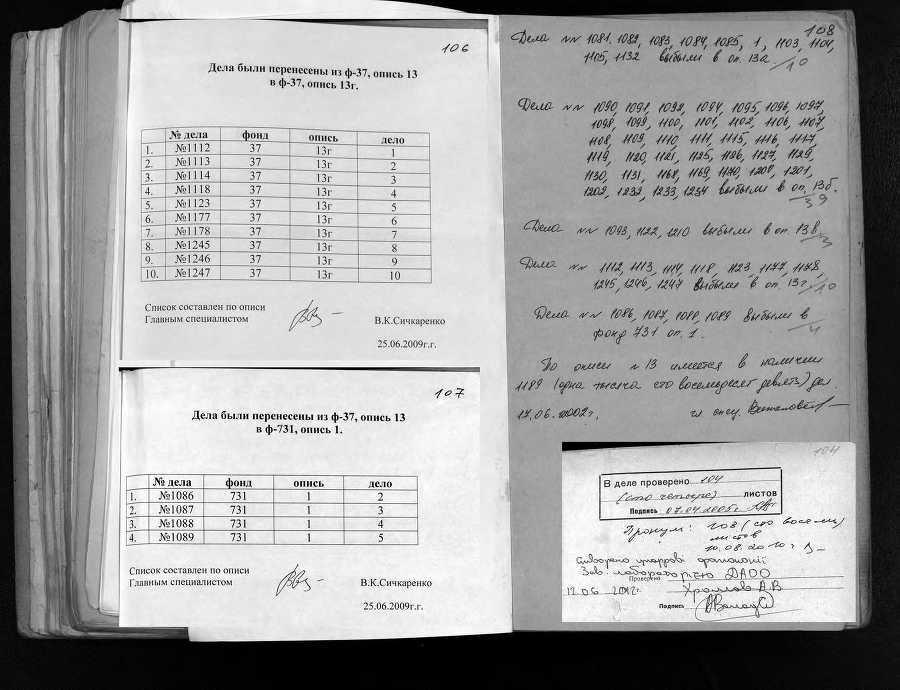 106
Дела были перенесены из ф-37, опись 13
в ф-37, опись 13г.
№ дела фонд опись дело
1. №1112 37 13г 1
2. №1113 37 13г 2
3. №1114 37 13г 3
4. №1118 37 13г 4
5. №1123 37 13г 5
6. №1177 37 13г 6
7. №1178 37 13г 7
8. №1245 37 13г 8
9. №1246 37 13г 9
10. №1247 37 13г 10
Список составлен по описи
Главным специалистом В.К.Сичкаренко
25.06.2009г.г.
107
Дела были перенесены из ф-37, опись 13
в ф-731, опись 1.
№ дела фонд опись дело
1. №1086 731 1 2
2. №1087 731 1 3
3. №1088 731 1 4
4. №1089 731 1 5
Список составлен по описи
Главным специалистом В.К.Сичкаренко
25.06.2009г.г.
108
Дела NN 1081, 1082, 1083, 1084, 1085, 1, 1103, 1104,
1105, 1132 выбыли в оп. 13а. /10
Дела NN 1090, 1091, 1092, 1094, 1095, 1096, 1097,
1098, 1099, 1100, 1101, 1102, 1106, 1107,
1108, 1109, 1110, 1111, 1115, 1116, 1117,
1119, 1120, 1121, 1125, 1126, 1127, 1129,
1130, 1131, 1168, 1169, 1170, 1200, 1201,
1202, 1232, 1233, 1234 выбыли в оп. 13б.
39
Дела NN 1093, 1122, 1210 выбыли в оп. 13в /3
Дела NN 1112, 1113, 1114, 1118, 1123, 1177, 1178,
1245, 1246, 1247 выбыли в оп. 13г. /10
Дела NN 1086, 1087, 1088, 1089 выбыли в
фонд 731 оп. 1. 4
По описи N 13 имеется в наличии
1189 (одна тысяча сто восемьдесят девять) дел.
17.06.2002г. гл. спец.
104
В деле проверено 104
(сто четыре) листов
Подпись 07.04.2005г.
Пронум: 108 (сто восемь)
листов
10.08.2010г
Створено цифрові фотокопії
Зав. лабораторією ДАОО
Проверено
12.06.2012г. Храмов А.В
Подпись